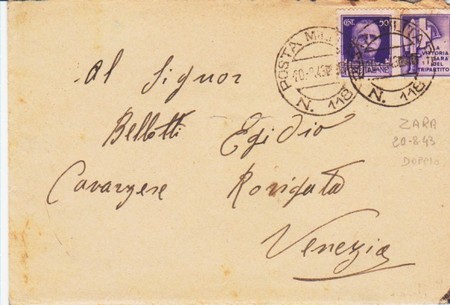 POSTA MILITARE
20-8-43
N. 118
CENT. 50
LA
VITTORIA
SARÀ
DEL
TRIPARTITO
N. 118
ZARA
20-8-43
DOPPIO
Al Signor
Bellotti Egidio
Cavarzese Rovigata
Venezia